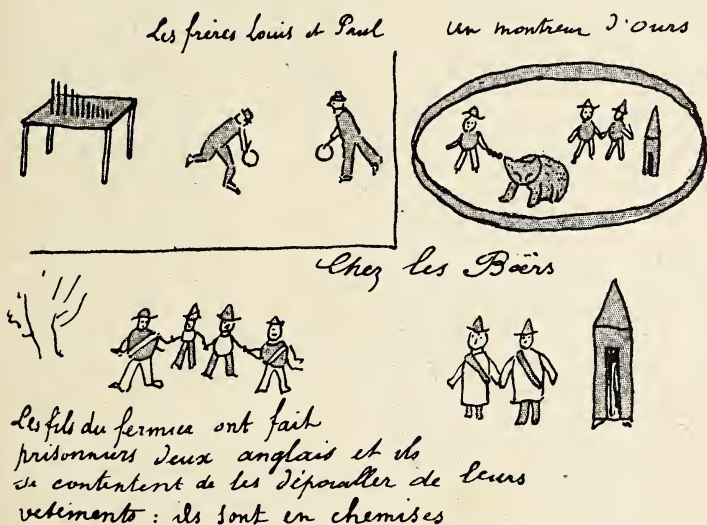 Les frères Louis et Paul
un montreur d'ours
Chez les Boërs
Les fils du fermier ont fait
prisonniers deux anglais et ils
se contentent de les dépouiller de leurs
vetements : ils sont en chemises